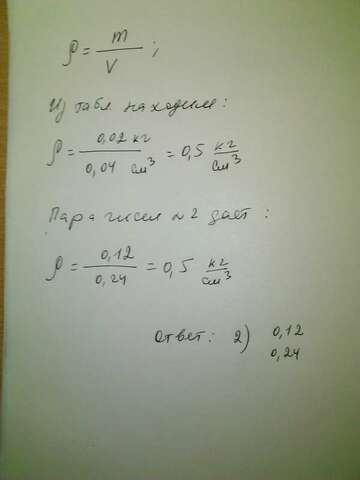 ρ = m/V ;
Из табл находим:
ρ = 0,02 кг / 0,04 см³ = 0,5 кг/см³
Пара чисел №2 даёт:
ρ = 0,12 / 0,24 = 0,5 кг/см³
Ответ: 2) 0,12
0,24